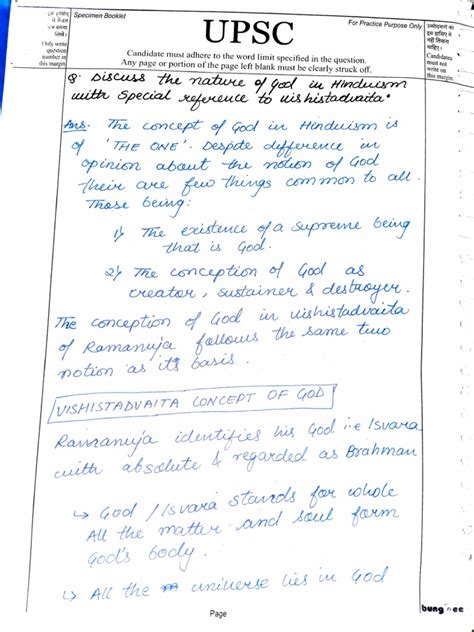 Specimen Booklet
UPSC
For Practice Purpose Only
Only write
question
number in
this margin
Candidates
must not
write on
this margin
Candidate must adhere to the word limit specified in the question.
Any page or portion of the page left blank must be clearly struck off.
8. Discuss the nature of God in Hinduism
with special reference to vishistadvaita.
Ans. The concept of God in Hinduism is
of 'THE ONE'. Despite difference in
opinion about the notion of God
their are few things common to all.
Those being:
1) The existence of a supreme being
that is God.
2) The conception of God as
creator, sustainer & destroyer.
The conception of God in vishistadvaita
of Ramanuja follows the same two
notion as its basis.
VISHISTADVAITA CONCEPT OF GOD
Ramanuja identifies his God i.e Isvara
with absolute & regarded as Brahman
↳ God / Isvara stands for whole
All the matter and soul form
God's body.
↳ All the universe lies in God
Page